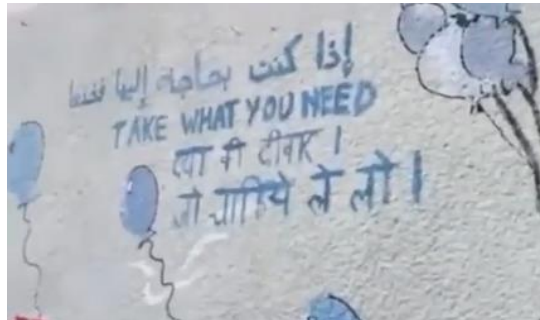 إذا كنت بحاجة إليها فخذها
TAKE WHAT YOU NEED
दया की दीवार।
जो चाहिये ले लो।